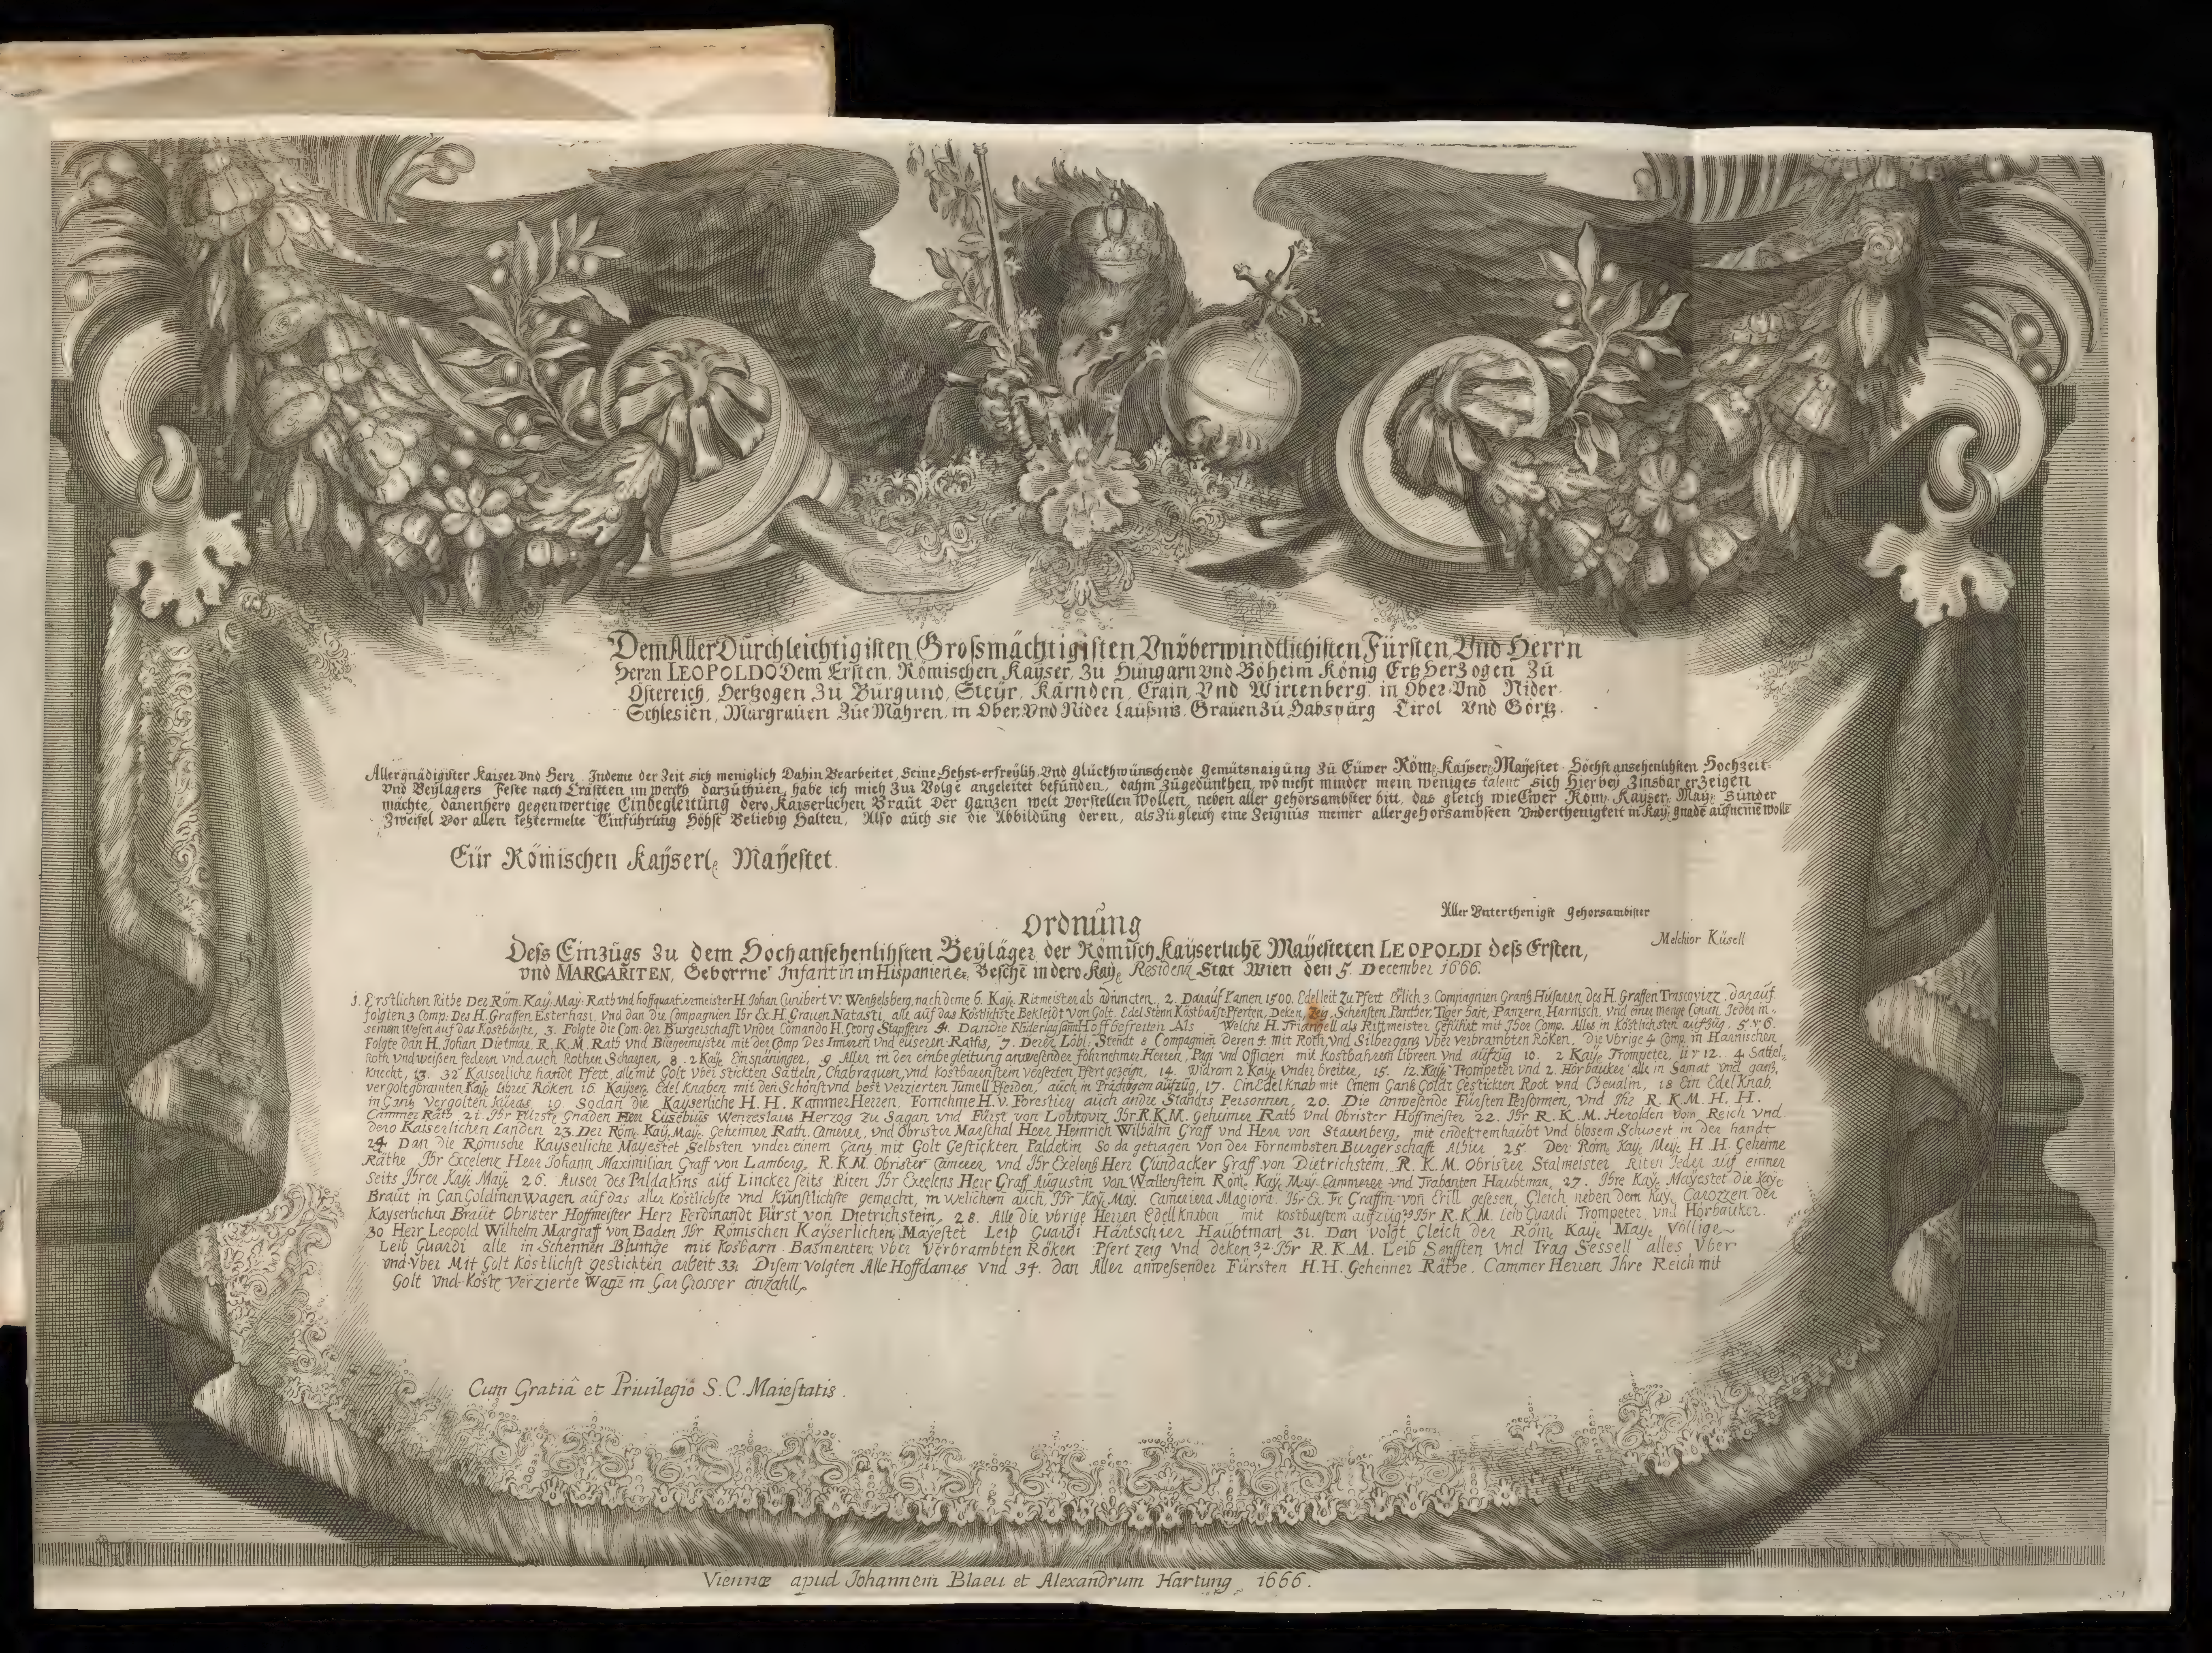 Dem Aller Dürchleichtigisten Grosmächtigisten Vnüberwindtlichisten Fürsten Vnd Herrn
Herrn LEOPOLDO Dem Ersten, Römischen Kayser, Zu Hungarn Vnd Böheim König Ertz Herzogen Zu
Östereich, Hertzogen Zu Burgund, Steyr, Kärnden, Crain, Vnd Wirtenberg, in Ober Vnd Nider
Schlesien, Margrauen Zue Mähren, in Ober, Vnd Nider Laußnis, Grauen Zu Habspurg Tirol Vnd Görtz.
Allergnädigister Kaiser Vnd Herr. Indeme der Zeit sich meniglich Dahin Bearbeitet, Seine Hehst-erfreylih, Vnd glückhwünschende gemütsnaigung Zu Eüwer Röm. Kayser. Mayestet Höchst ansehenlihsten Hochzeit
Vnd Beylagers Feste nach Cräftten im werch darzuthuen, habe ich mich Zur Volge angeleitet befunden, dahin Zugedünkhen, wo nicht minder mein weniges talent sich Hierbey Zinsbar erzeigen
möchte, dänenhero gegenwertige Einbegleitung dero Kaiserlichen Braut Der gantzen welt Vorstellen Wollen, neben aller gehorsambster bitt, das gleich wie Ewer Röm. Kayser. May. Sünder
Zweifel Vor allen letztermelte Einführung Höhst Beliebig Halten, Also auch sie die Abbildung deren, als Zugleich eine Zeignus meiner allergehorsambsten Vnderthenigkeit in Kay. gnade aufneme wolle
Eür Römischen Kayserl. Mayestet.
Aller Vnterthenigst Gehorsambister
Melchior Küsell
Ordnung
Deß Einzugs Zu dem Hochansehenlihsten Beyläger der Römisch Kayserliche Mayesteten LEOPOLDI deß Ersten,
vnd MARGARITEN, Geborrne Infantin in Hispanien &c. Beschē in dero Kay. Residenz Stat Wien den 5. December 1666.
1. Erstlichen Rithe Der Röm. Kay. May. Rath vnd hoffquartiermeister H. Johan Cunibert V. Wentzelsberg, nach deme 6. Kay. Ritmeister als Adiuncten, 2. Darauf Kamen 1500. Edelleit Zu Pfert Erlich 3. Compagnien Grantz Husaren des H. Graffen Trascovizz. darauf
folgten 3 Comp. Des H. Graffen Esterhasi, Vnd dan die Compagnien Ihr Ex. H. Grauen Natasti, alle auf das Kostlichste Bekleidt Von Golt, Edel Stenn Kostbarst Pferten, Deken, Zeg, Schensten Panther, Tiger hait, Panzern, Harnisch, vnd einer menge Corun, Jeder in
seinem Wesen auf das Kostbarste, 3. Folgte die Com. der Burgerschafft Vnder Comando H. Georg Stapffer 4. Dan die Niderlag sam Hoffbefreiten Als Welche H. Triangell als Rittmeister Geführt mit Ihoe Comp. Alles in Kostlichsten aufzug. 5 V 6.
Folgte dan H. Johan Dietmar. R. K. M. Rath vnd Burgermeister mit der Comp Des Inneren vnd eüseren Raths, 7. Deren Löbl. Stendt 8 Compagnien deren 4 mit Roth, vnd Silbergantz Vber verbrambten Röken, die Vbrige 4 Comp. in Harnischen
Roth vnd weißen federn vnd auch Rothen Scharpen, 8. 2 Kay. Einspäninger, 9 Aller in der einbegleitung anwesender fehrnehmer Herren, Pagi vnd Officieri mit kostbahren libreen vnd aufzüg 10. 2 Kay. Trompeter, 11 V 12. 4 Sattel
Knecht, 13. 32 Kaiserliche handt Pfert, alle mit Golt Vber stickten Sätteln, Chabraquen, vnd Kostbaren stein versezten Pfert gezeign, 14. Widrom 2 Kay. Vnder breiter, 15. 12 Kay. Trompeter vnd 2. Hörbauker alle in Samat vnd gantz
vergolt gbramten Kay. Libree Röken 16 Kayser. Edel Knaben mit den Schönst vnd best verzierten Tumell Pferden, auch in Prächtigem aufzüg, 17. Ein Edel Knab mit Einem Gantz Goldt Gestickten Rock vnd Cheualin, 18 Ein Edel Knab
in Gantz Vergolten Kürass, 19 Sodan die Kayserliche H. H. Kammer Herren. Fornehme H. V. Forestiery auch andre Standts Personnen, 20. Die anwesende Fürsten Personnen, vnd Ihr R. K. M. H. H.
Cammer Räth 21 Ihr Fürstl. Gnaden Herr Eusebius Wenzeslaus Herzog Zu Sagan vnd Fürst von Lobkoviz Ihr R. K. M. Geheimer Rath vnd Obrister Hoffmeister 22. Ihr R. K. M. Herolden vom Reich vnd
dero Kaiserlichen Landen 23. Der Röm. Kay. May. Geheimer Rath. Camerer, vnd Obrister Marschal Herr Heinrich Wilhälm Graff vnd Herr von Starnberg, mit endektem haubt vnd blosem Schwert in der handt
24. Dan die Römische Kayserliche Mayestet Selbsten vnder einem Gantz mit Golt Gestickten Paldekin So da getragen von der Fornembsten Burgerschafft Alhier 25. Der Röm. Kay. May. H. H. Geheime
Räthe Ihr Excelenz Herr Johann Maximilian Graff von Lamberg, R. K. M. Obrister Camerer vnd Ihr Exelentz Herr Gundacker Graff von Dietrichstein, R. K. M. Obrister Stalmeister Riten Jeder auf einner
Seits Ihrer Kay. May. 26. Auser des Paldakins auf Lincker seits Riten Ihr Excelens Herr Graff Augustin von Wallenstein Röm. Kay. May. Cammerer vnd Trabanten Haubtman, 27. Ihre Kay. Mayestet die Kay.
Braut in Gan Goldinen Wagen auf das aller kostlichste vnd Künstlichste gemacht, in welichem auch Ihr Kay. May. Cameriera Magiora. Ihr Ex. Fr. Graffin von Erill gesesen, Gleich neben dem Kay. Carozzen der
Kayserlichen Braut Obrister Hoffmeister Herr Ferdinandt Fürst von Dietrichstein, 28. Alle die vbrige Herren Edell Knaben mit kostbarstem aufzüg 29 Ihr R. K. M. Leib Guardi Trompeter, vnd Hörbauker.
30 Herr Leopold Wilhelm Margraf von Baden Ihr Römischen Kayserlichen Mayestet Leib Guardi Hartschier Haubtman 31. Dan Volgt Gleich der Röm. Kay. May. Völlige
Leib Guardi alle in Schennen Blumge mit Kosbarn Basmenten vber verbrambten Röken Pfert zeig Vnd deken 32 Ihr R. K. M. Leib Senfften Vnd Trag Sessell alles Vber
vnd Vber Mit Golt Kostlichst gestickten arbeit 33. Disem Volgten Alle Hoffdames Vnd 34. dan Aller anwesender Fürsten H. H. Geheimer Räthe. Cammer Herren Ihre Reich mit
Golt vnd Koste Verzierte Wagē in Gar Grosser anzahll.
Cum Gratiâ et Priuilegio S. C. Maiestatis.
Viennæ apud Johannem Blaeu et Alexandrum Hartung 1666.